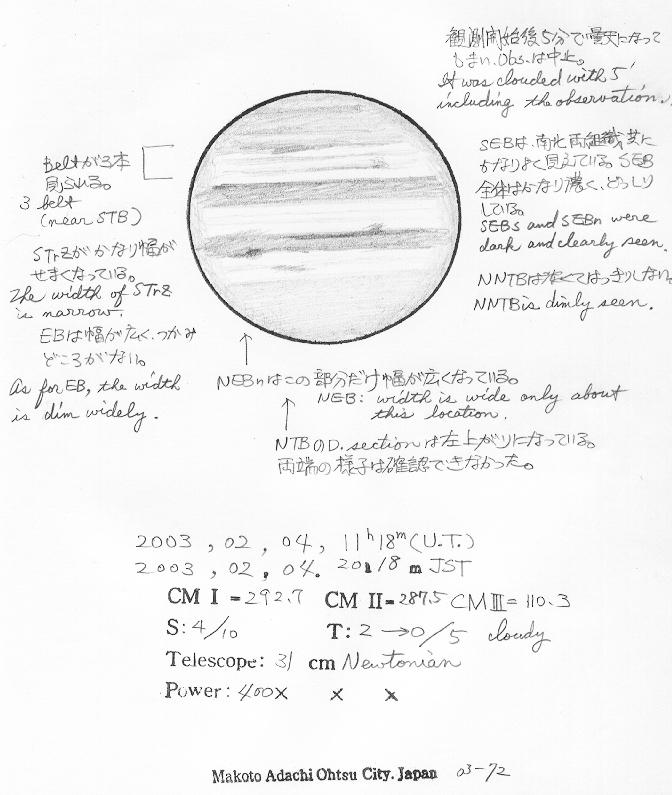 観測開始後5分で曇天になって
しまい、Obs.は中止。
It was clouded with 5'
including the observation.
SEBは、南北両組織共に
かなりよく見えている。SEB
全体はかなり濃く、どっしり
している。
SEBs and SEBn were
dark and clearly seen.
NNTBは淡くてはっきりしない。
NNTB is dimly seen.
Beltが3本
見られる。
3 belt
(near STB)
STrZがかなり幅が
せまくなっている。
The width of STrZ
is narrow.
EBは幅が広く、つかみ
どころがない。
As for EB, the width
is dim widely.
NEBnはこの部分だけ幅が広くなっている。
NEB: width is wide only about
this location.
NTBのD. sectionは左上がりになっている。
両端の様子は確認できなかった。
2003 , 02 , 04 , 11h18m (U.T.)
2003 , 02 , 04. 20 18 m JST
CM I = 292.7 CM II = 287.5 CM III = 110.3
S: 4/10 T: 2 → 0/5 cloudy
Telescope: 31 cm Newtonian
Power: 400× × ×
Makoto Adachi Ohtsu City. Japan 03-72